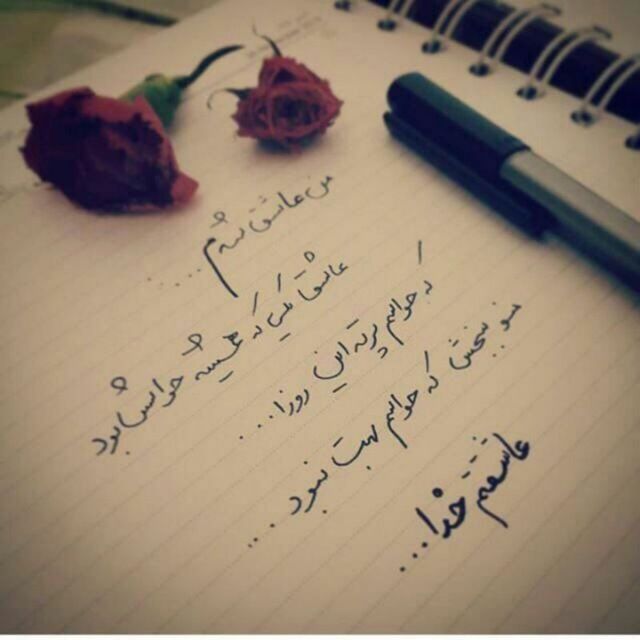 من عاشق شدم ....
عاشق یکی که همیشه حواسش بود
که حواسم پرته این روزا ...
منو ببخش که حواسم بهت نبود ....
عاشقتم خدا ...